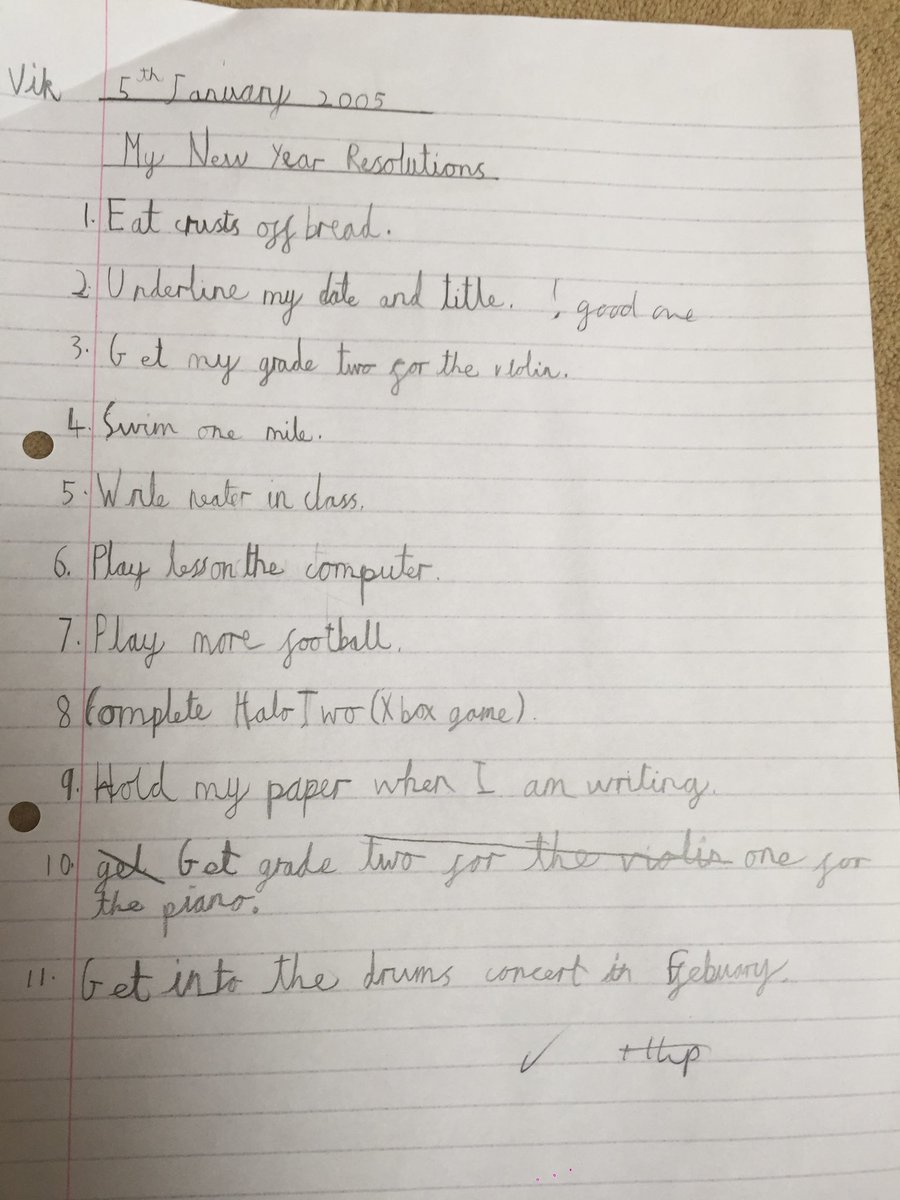 Vik 5th January 2005
My New Year Resolutions
1. Eat crusts off bread.
2. Underline my date and title. ! good one
3. Get my grade two for the violin.
4. Swim one mile.
5. Write neater in class.
6. Play less on the computer.
7. Play more football.
8 Complete Halo Two (Xbox game).
9. Hold my paper when I am writing.
10. get Get grade two for the violin one for
the piano.
11. Get into the drums concert in Febuary.
✓